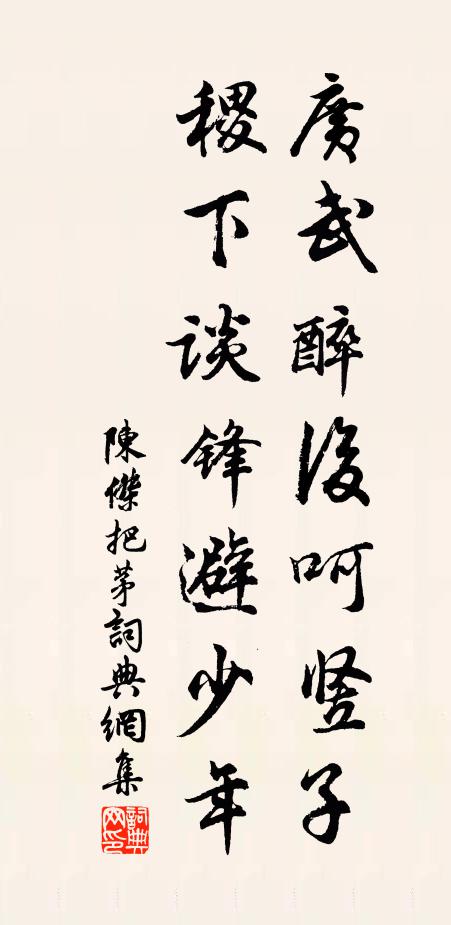 廣武醉後呵竖子
稷下談鋒避少年
陳傑把茅詞典網集
詞典網印